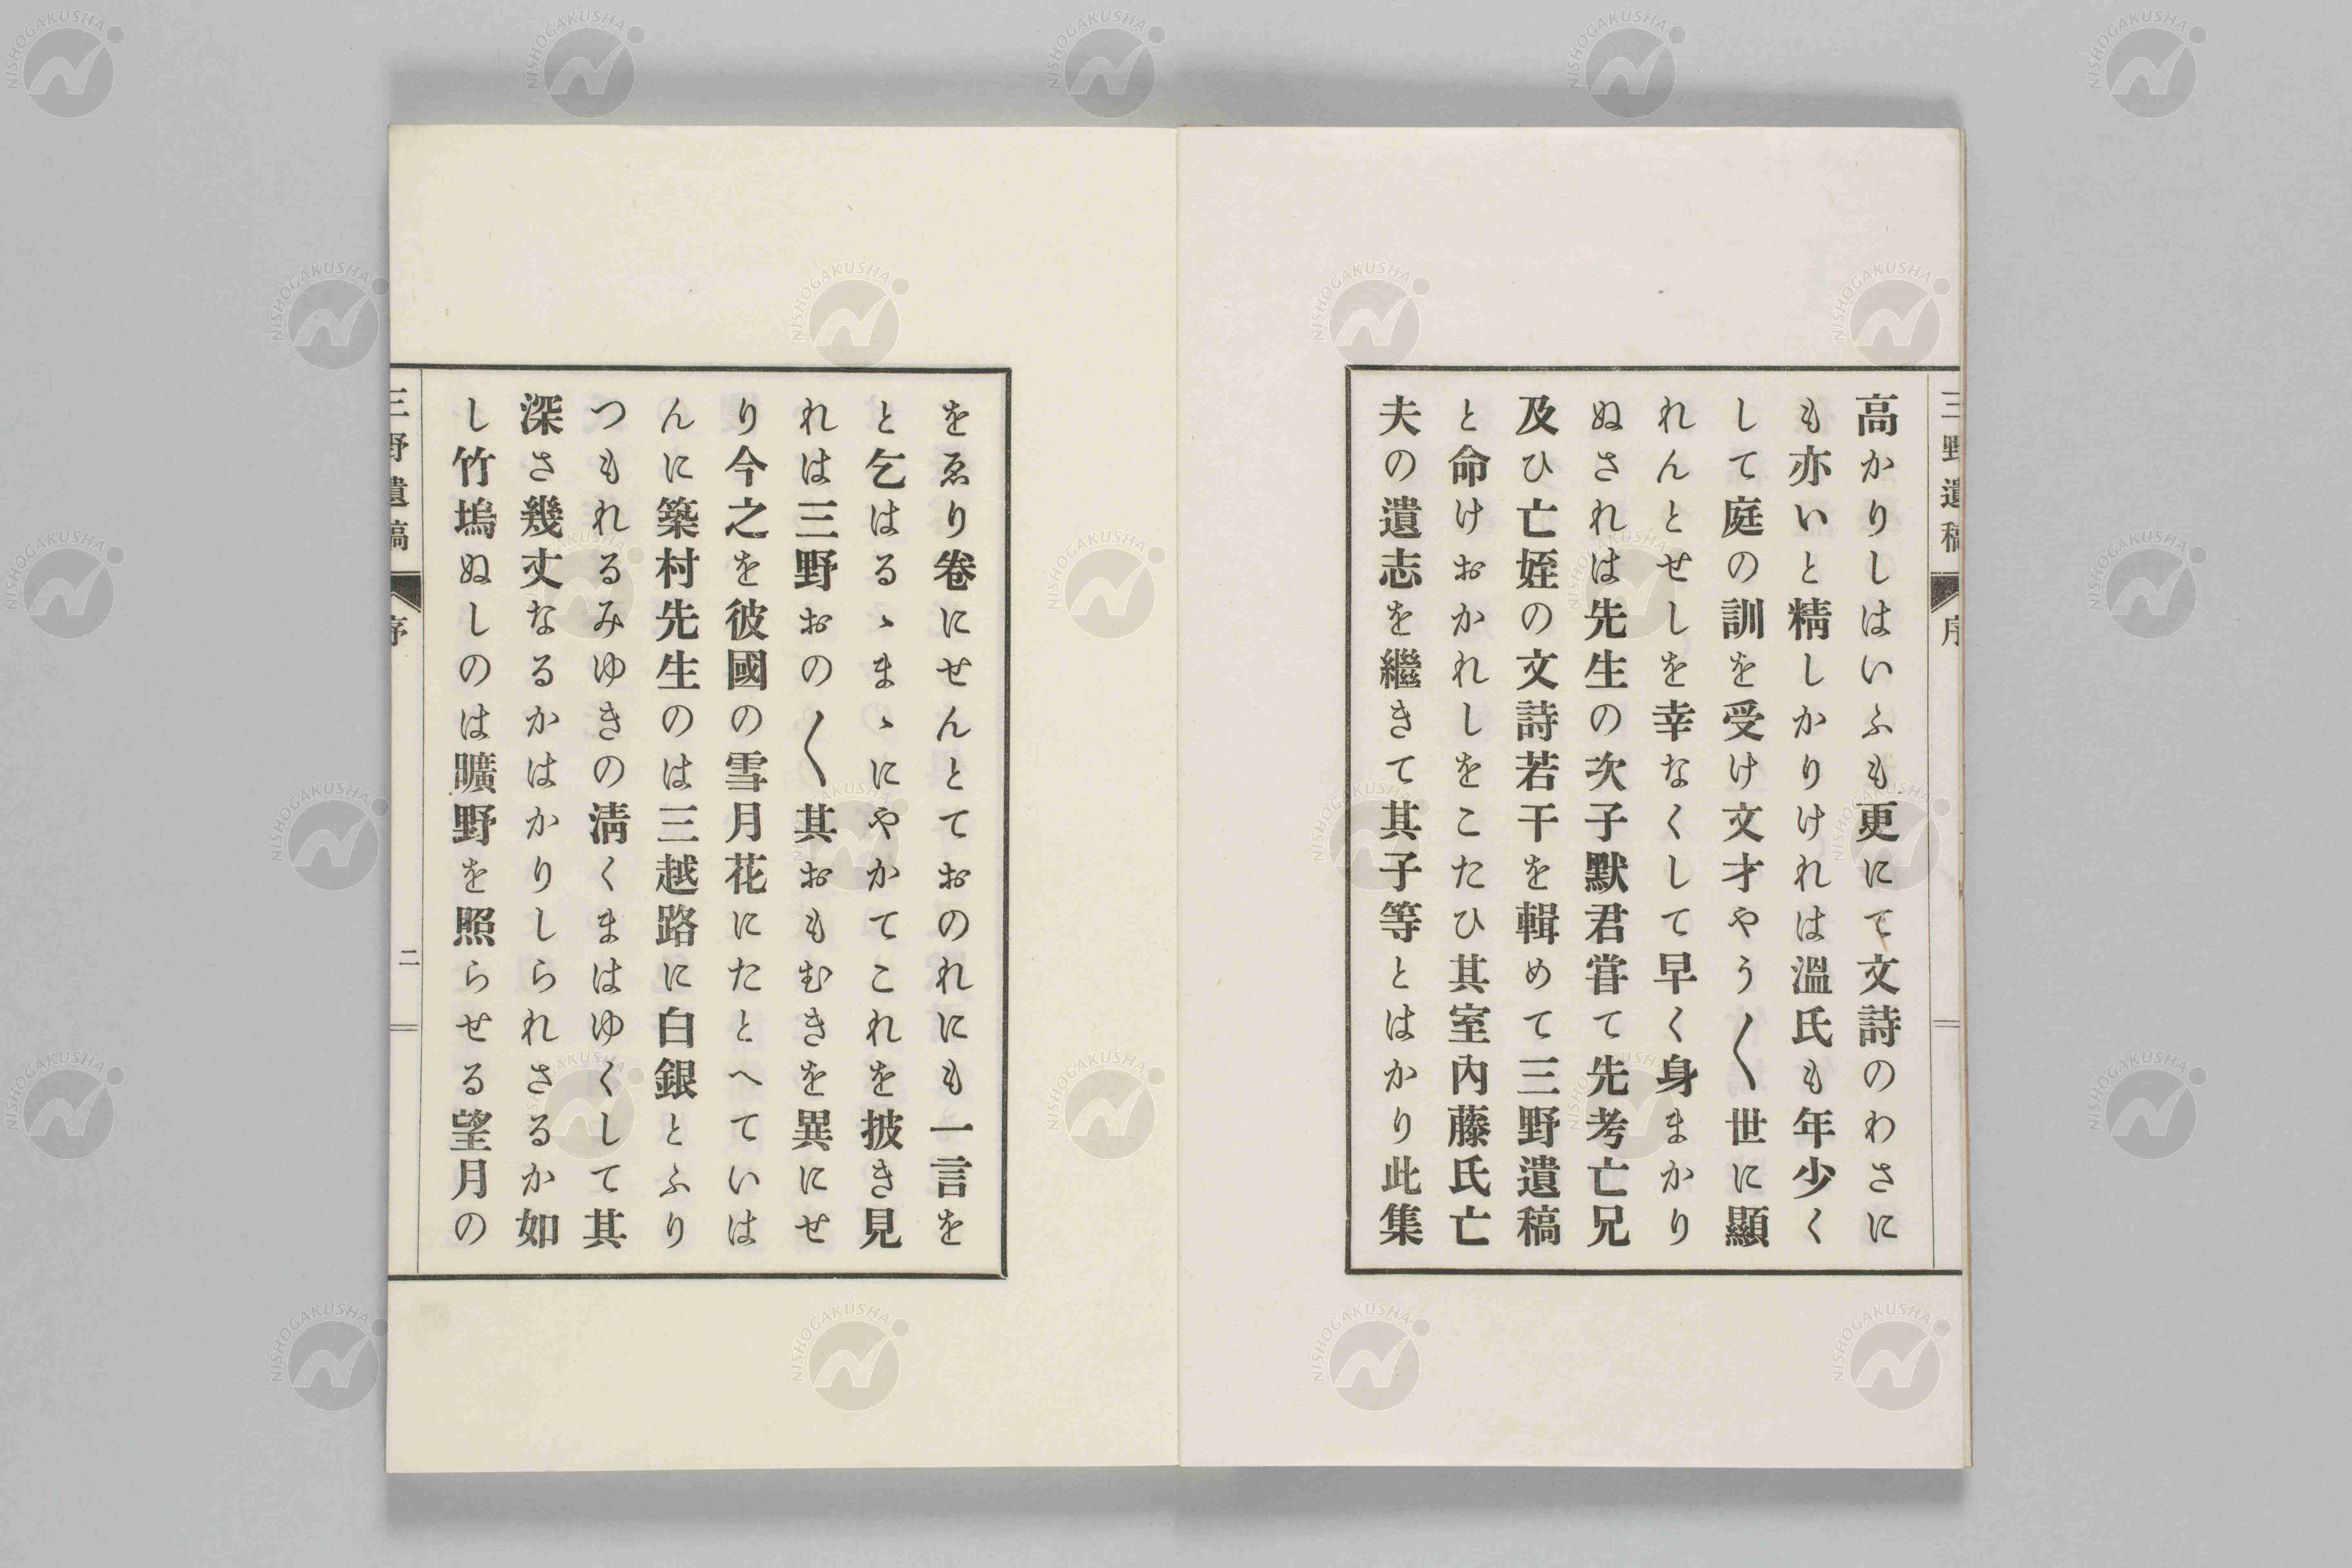 三野遺稿 序
高かりしはいふも更にて文詩のわさに
も亦いと精しかりけれは溫氏も年少く
して庭の訓を受け文才やう〱世に顯
れんとせしを幸なくして早く身まかり
ぬされは先生の次子默君甞て先考亡兄
及ひ亡姪の文詩若干を輯めて三野遺稿
と命けおかれしをこたひ其室內藤氏亡
夫の遺志を繼きて其子等とはかり此集
をゑり卷にせんとておのれにも一言を
と乞はるゝまゝにやかてこれを披き見
れは三野おの〱其おもむきを異にせ
り今之を彼國の雪月花にたとへていは
んに築村先生のは三越路に白銀とふり
つもれるみゆきの淸くまはゆくして其
深さ幾丈なるかはかりしられさるか如
し竹塢ぬしのは曠野を照らせる望月の
三野遺稿 序 二
NISHOGAKUSHA